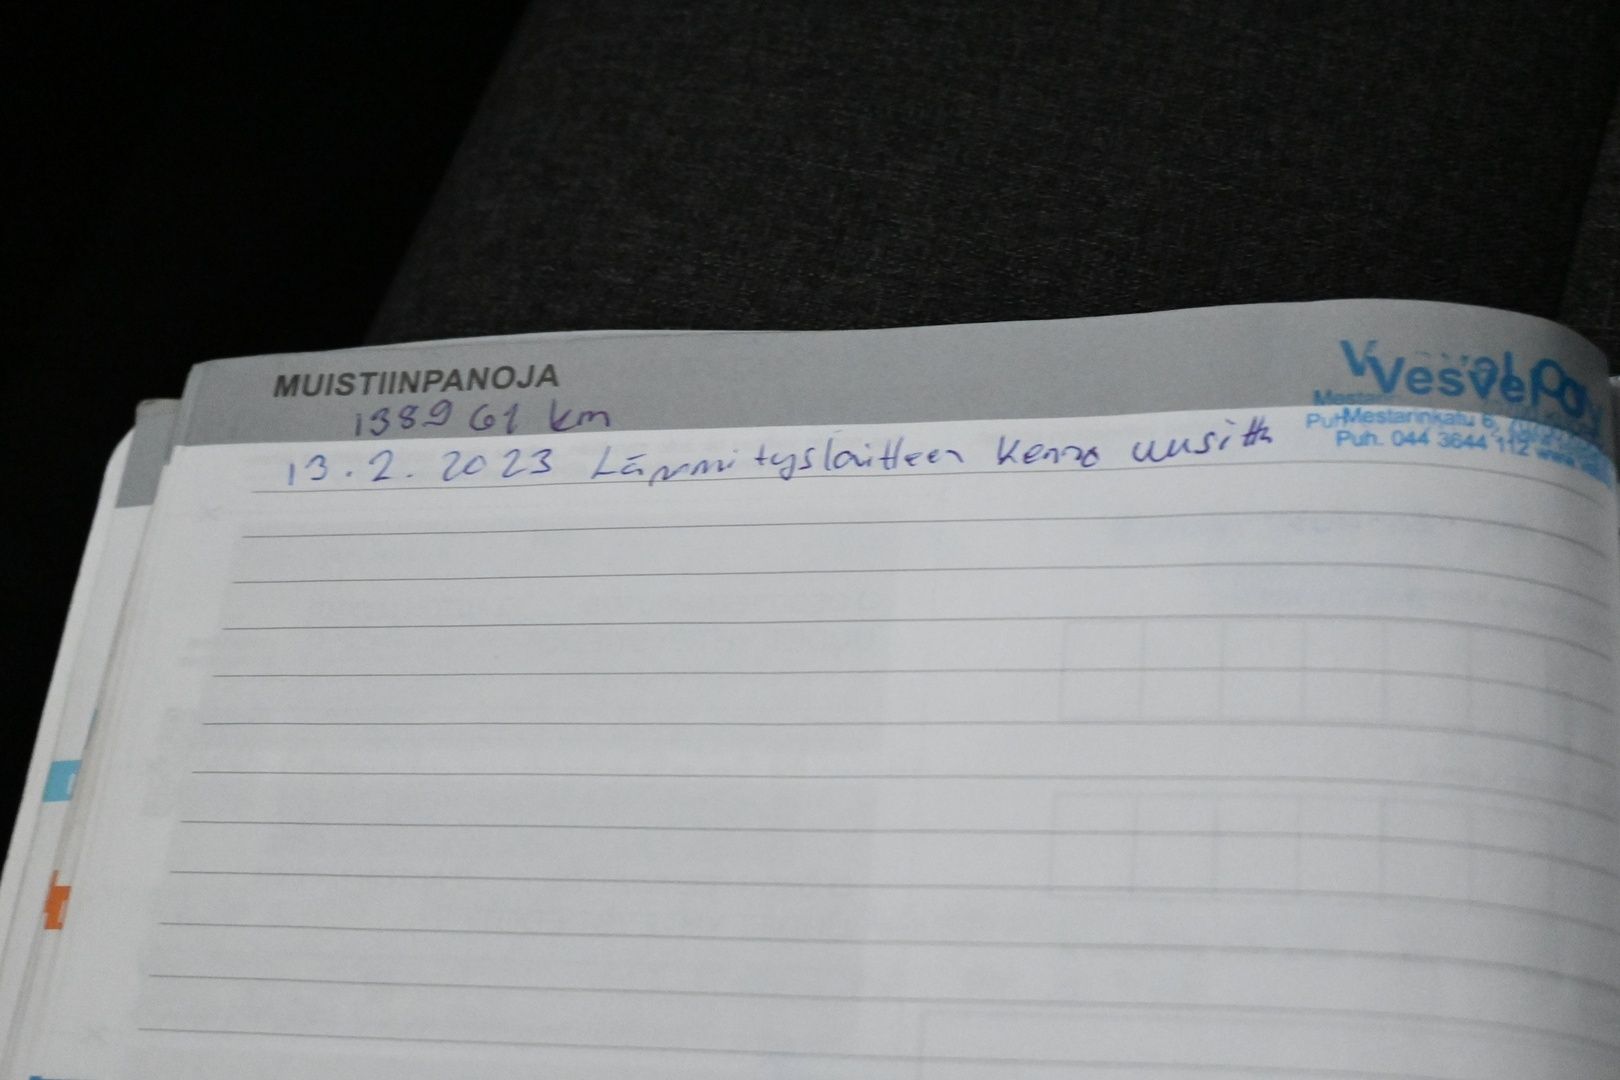 MUISTIINPANOJA
138961 km
13.2.2023 Lämmityslaitteen kenno uusittu
Mestarinkatu 6,
Puh. 044 3644 112 www